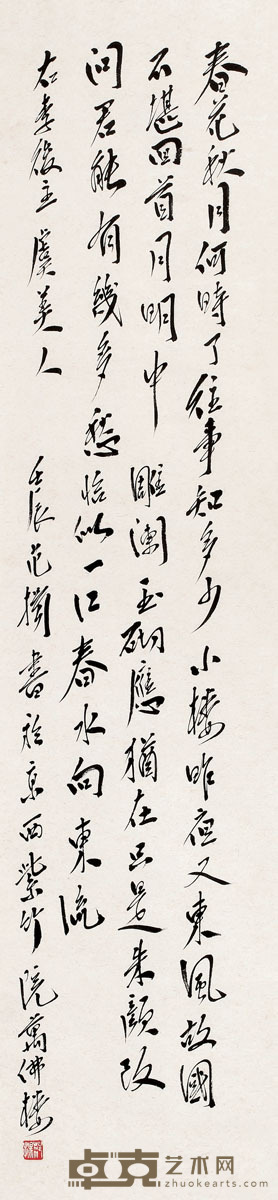 春花秋月何時了往事知多少小楼昨夜又東風故國
不堪回首月明中雕闌玉砌應猶在只是朱顏改
问君能有幾多愁恰似一江春水向東流
右李後主虞美人
壬辰范 書於京西紫竹院萬佛楼
卓克艺术网
zhuokearts.com